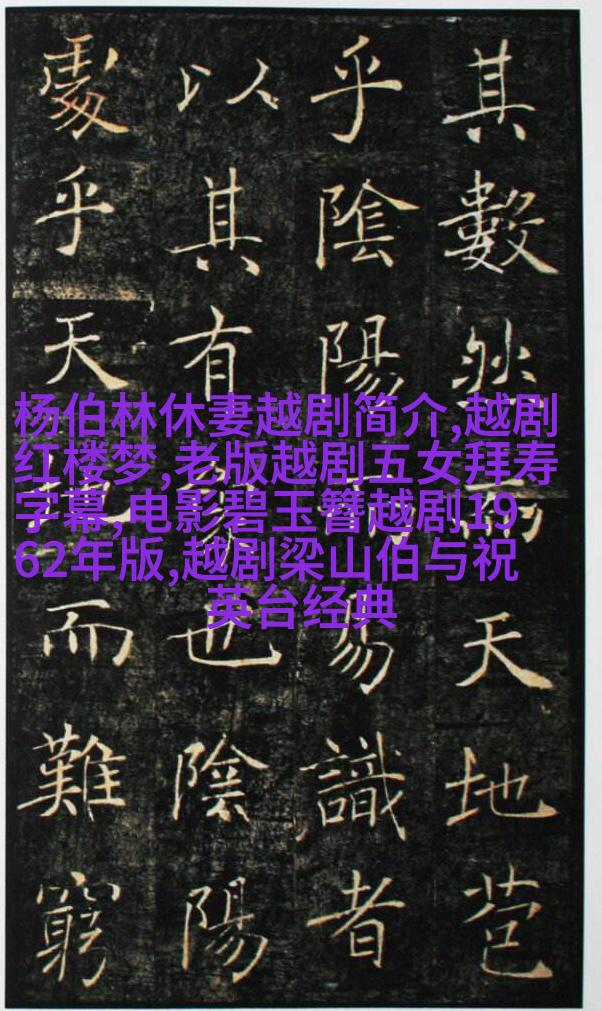 其數然而天地苞
乎陰陽而易識者
以其有象也陰陽
處乎天地而難窮
杨伯林休妻越剧简介,越剧
红楼梦,老版越剧五女拜寿
字幕,电影碧玉簪越剧19
62年版,越剧梁山伯与祝
英台经典